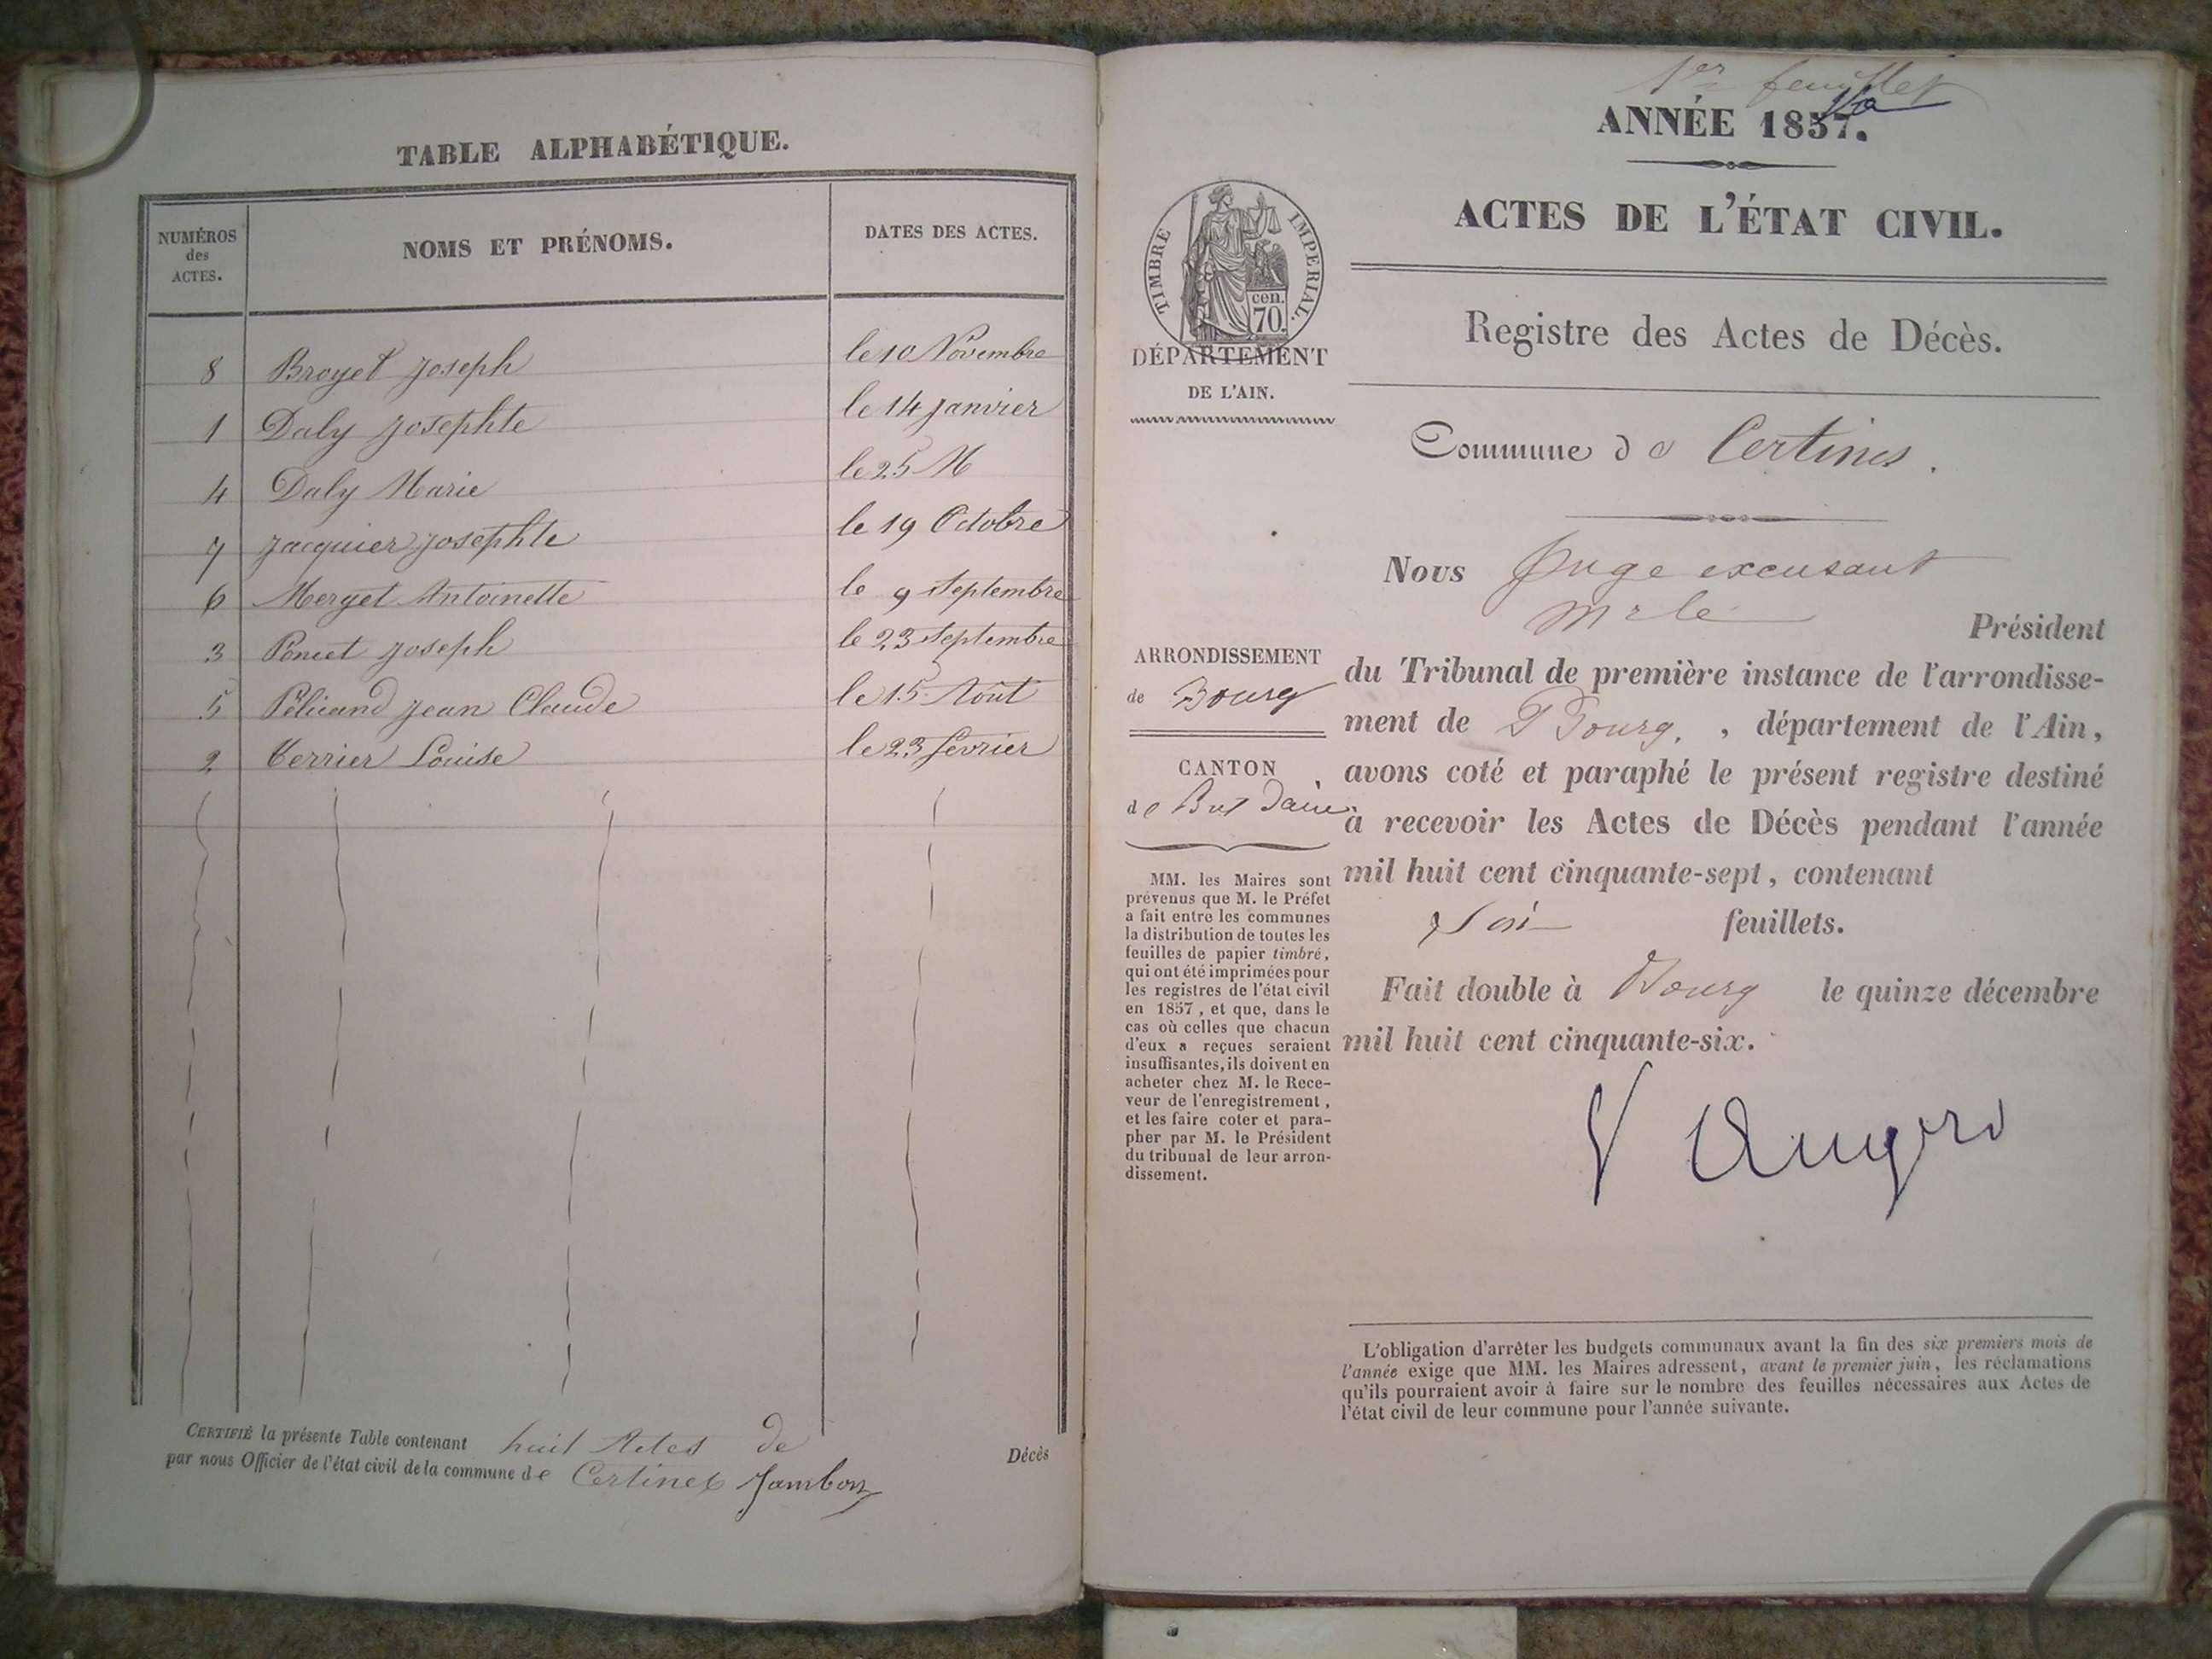 TABLE ALPHABÉTIQUE.
NUMÉROS
des
ACTES.
NOMS ET PRÉNOMS.
DATES DES ACTES.
8 Broyet Joseph le 10 Novembre
1 Daly Josephte le 14 Janvier
4 Daly Marie le 25 M
7 Jacquier Josephte le 19 Octobre
6 Merget Antoinette le 9 Septembre
3 Poncet Joseph le 23 Septembre
5 Pélicand Jean Claude le 15 Aout
2 Terrier Louise le 23 fevrier
CERTIFIÉ la présente Table contenant huit Actes de Décès
par nous Officier de l'état civil de la commune de Certines Jambon
1er feuillet
ANNÉE 1857.
ACTES DE L'ÉTAT CIVIL.
TIMBRE IMPERIAL.
cen.
70.
DÉPARTEMENT
DE L'AIN.
Registre des Actes de Décès.
Commune de Certines.
Nous Juge excusant
Mr le Président
du Tribunal de première instance de l'arrondisse-
ment de Bourg, département de l'Ain,
avons coté et paraphé le présent registre destiné
à recevoir les Actes de Décès pendant l'année
mil huit cent cinquante-sept, contenant
feuillets.
Fait double à Bourg le quinze décembre
mil huit cent cinquante-six.
ARRONDISSEMENT
de Bourg
CANTON
de Pont Dain
MM. les Maires sont
prévenus que M. le Préfet
a fait entre les communes
la distribution de toutes les
feuilles de papier timbré,
qui ont été imprimées pour
les registres de l'état civil
en 1857, et que, dans le
cas où celles que chacun
d'eux a reçues seraient
insuffisantes, ils doivent en
acheter chez M. le Rece-
veur de l'enregistrement,
et les faire coter et para-
pher par M. le Président
du tribunal de leur arron-
dissement.
L'obligation d'arrêter les budgets communaux avant la fin des six premiers mois de
l'année exige que MM. les Maires adressent, avant le premier juin, les réclamations
qu'ils pourraient avoir à faire sur le nombre des feuilles nécessaires aux Actes de
l'état civil de leur commune pour l'année suivante.